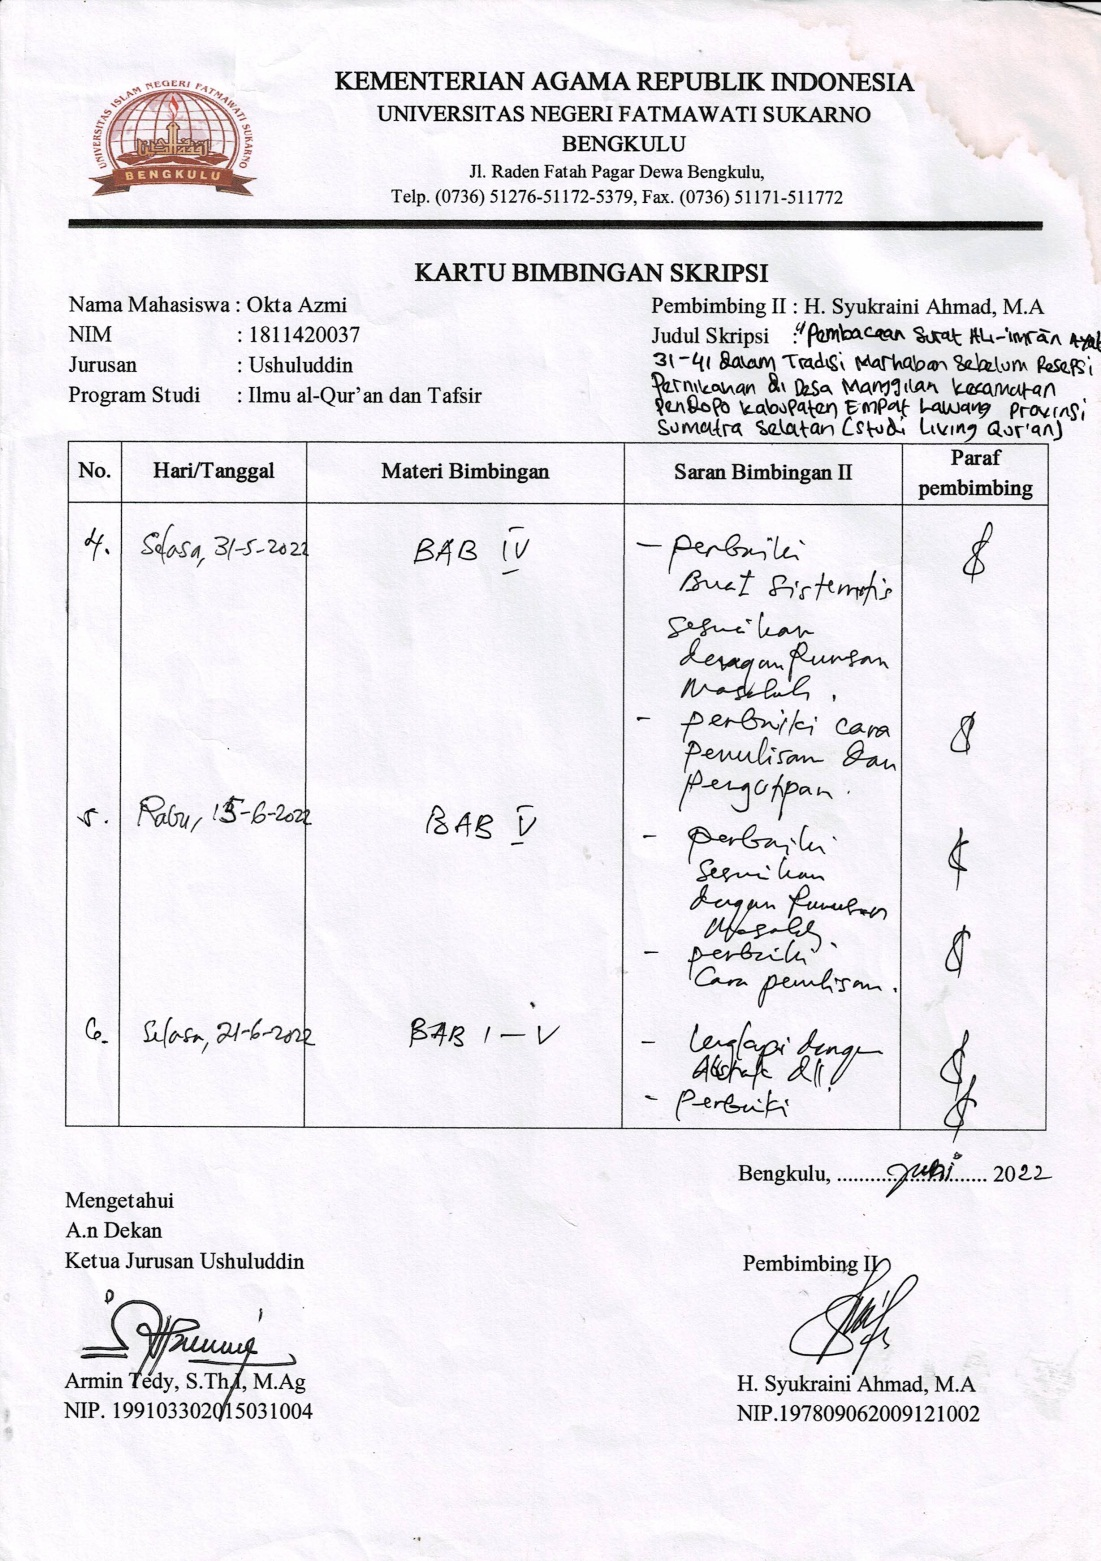 UNIVERSITAS ISLAM NEGERI FATMAWATI SUKARNO
BENGKULU
KEMENTERIAN AGAMA REPUBLIK INDONESIA
UNIVERSITAS NEGERI FATMAWATI SUKARNO
BENGKULU
Jl. Raden Fatah Pagar Dewa Bengkulu,
Telp. (0736) 51276-51172-5379, Fax. (0736) 51171-511772
KARTU BIMBINGAN SKRIPSI
Nama Mahasiswa : Okta Azmi
NIM : 1811420037
Jurusan : Ushuluddin
Program Studi : Ilmu al-Qur'an dan Tafsir
Pembimbing II : H. Syukraini Ahmad, M.A
Judul Skripsi : "Pembacaan Surat Ali-imrān Ayat
31-41 dalam Tradisi Marhaban Sebelum Resepsi
Pernikahan di Desa Manggilan Kecamatan
Pendopo Kabupaten Empat Lawang Provinsi
Sumatra Selatan (Studi Living Qur'an)
No. Hari/Tanggal Materi Bimbingan Saran Bimbingan II Paraf
pembimbing
4. Selasa, 31-5-2022 BAB IV - perbaiki
Buat Sistematis
sesuaikan
dengan Rumusan
Masalah.
- perbaiki cara
Penulisan dan
Pengutipan.
5. Rabu, 15-6-2022 BAB V - perbaiki
Sesuaikan
dengan Rumusan
Masalah.
- perbaiki
Cara penulisan.
6. Selasa, 21-6-2022 BAB I - V - lengkapi dengan
Abstrak dll
- Perbaiki
Bengkulu, .................... 2022
Mengetahui
A.n Dekan
Ketua Jurusan Ushuluddin
Armin Tedy, S.Th.I, M.Ag
NIP. 199103302015031004
Pembimbing II
H. Syukraini Ahmad, M.A
NIP.197809062009121002